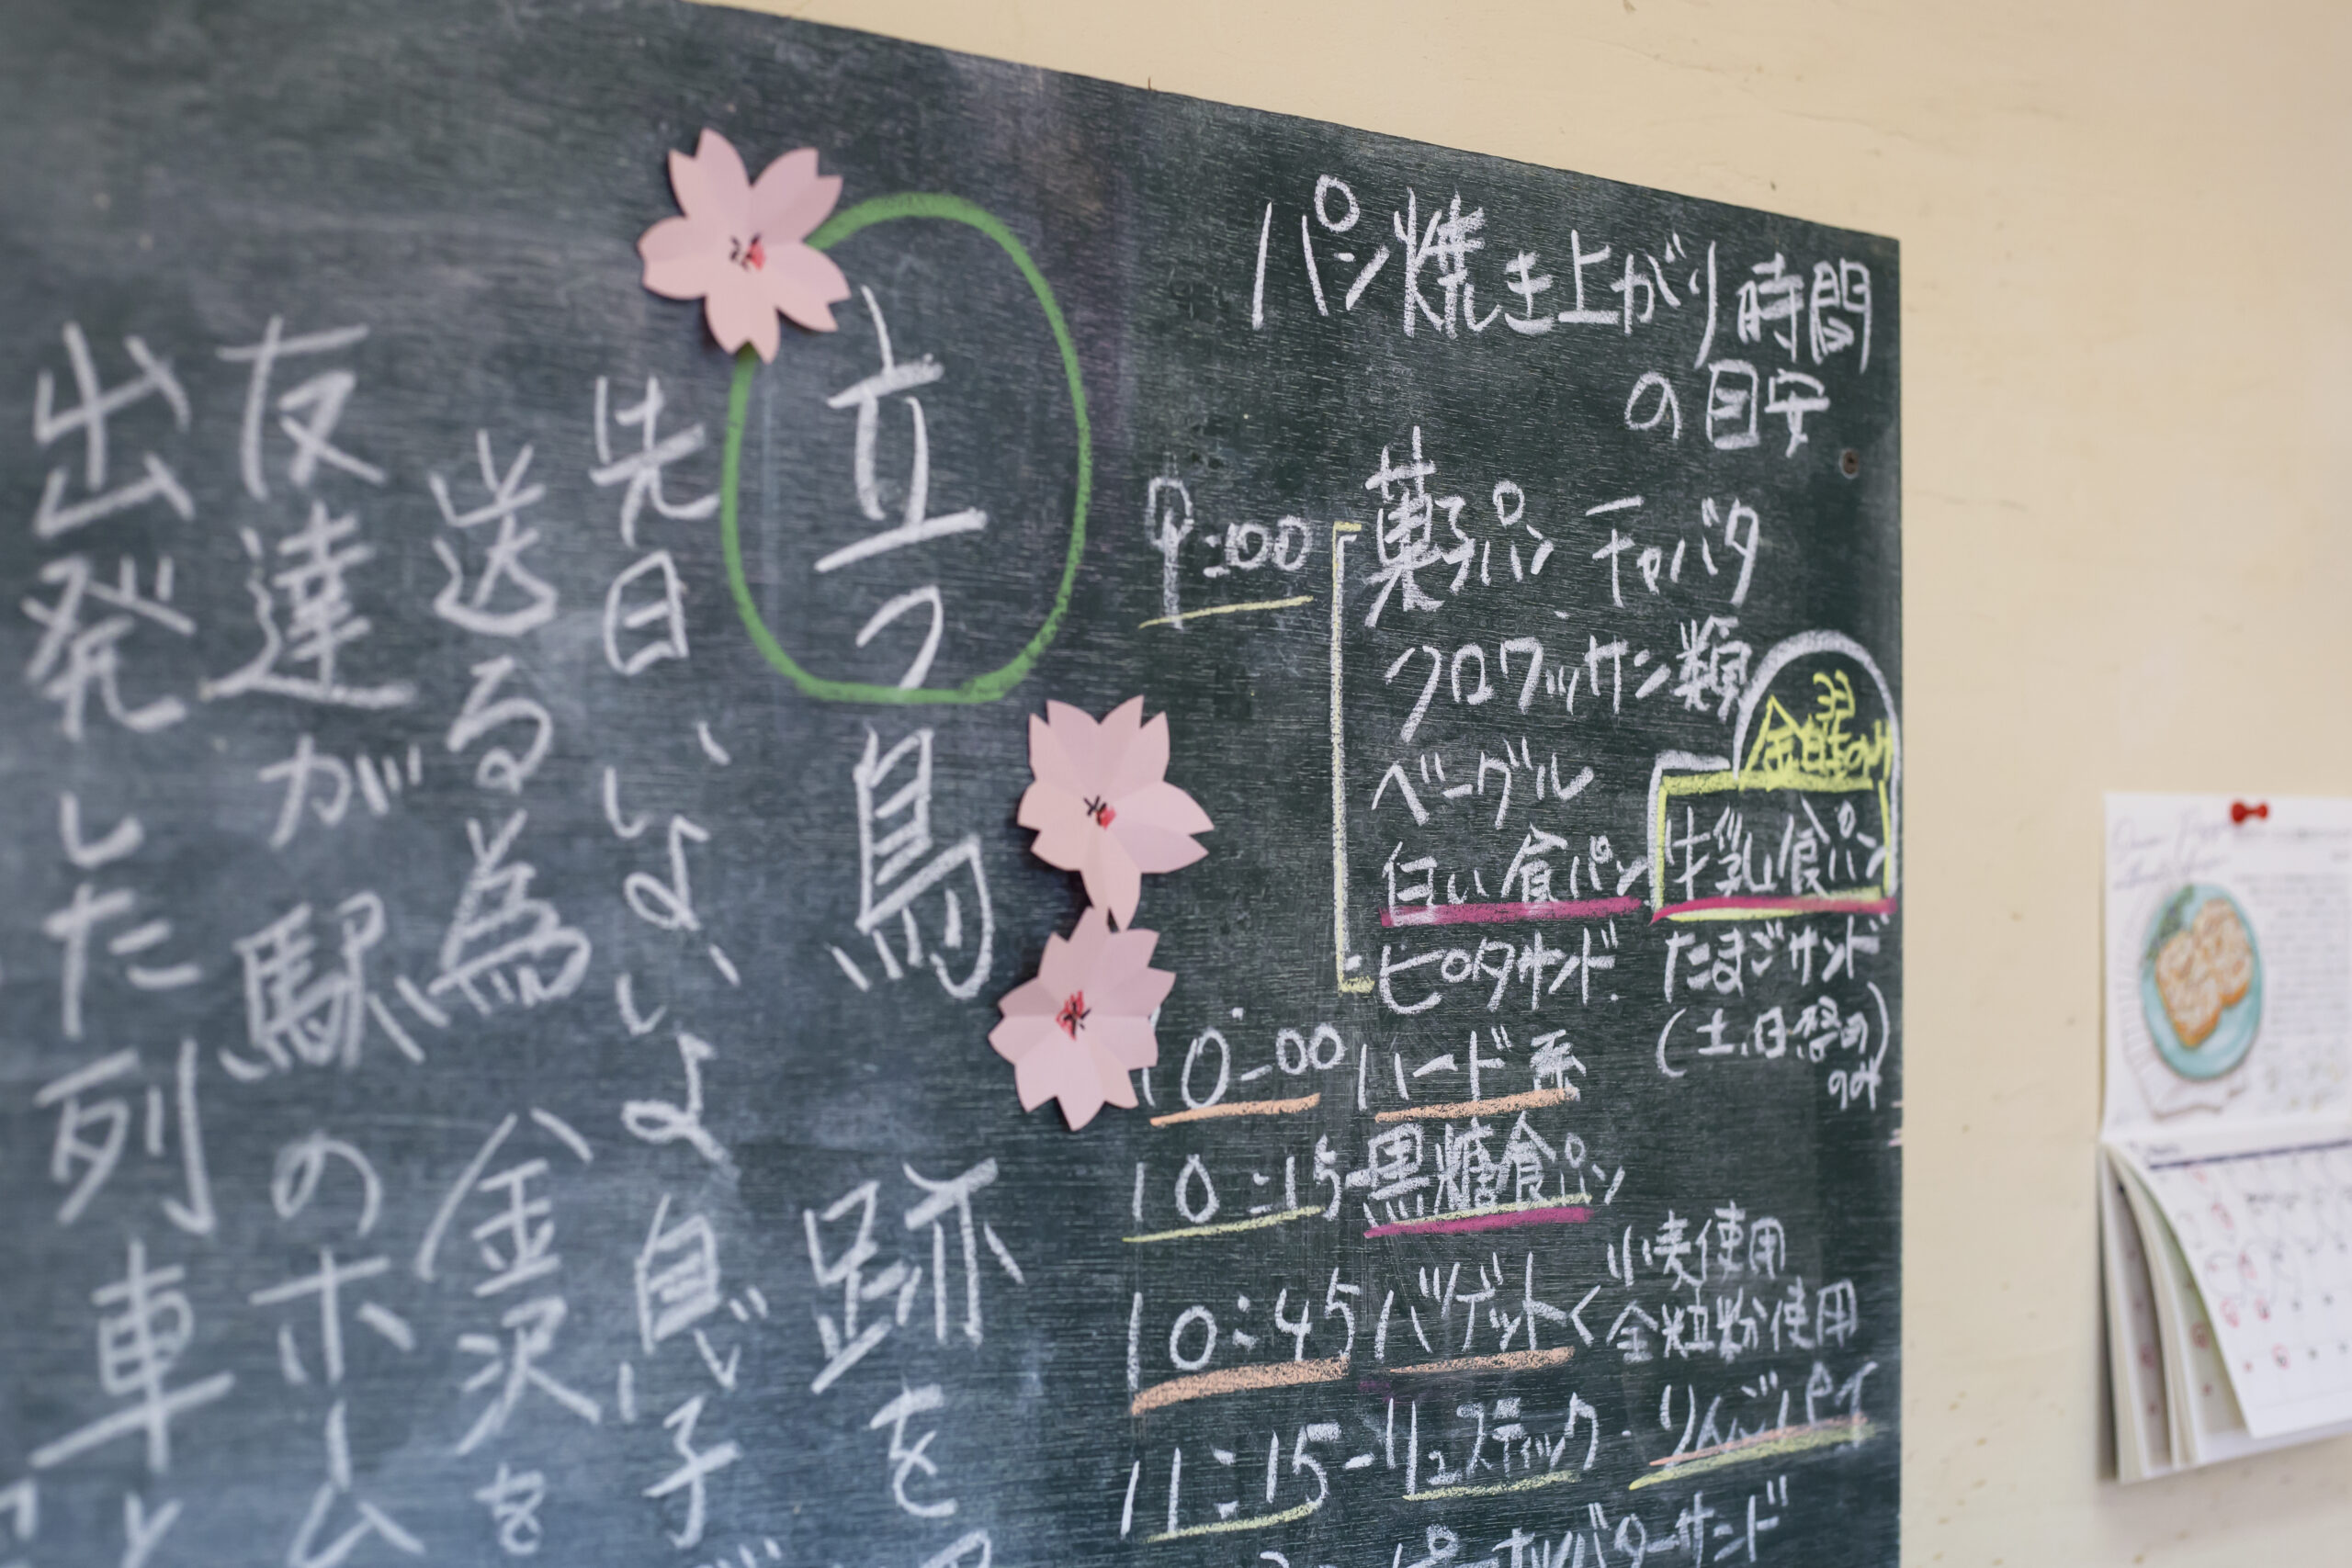 立つ鳥跡を
先日、いよいよ息子
送る為、金沢を
友達が駅のホーム
出発した列車と
パン焼き上がり時間
の目安
9:00 菓子パン チャバタ
クロワッサン類
ベーグル
金曜のみ
白い食パン 牛乳食パン
ピロタサンド たまごサンド
(土.日.祭め)
のみ
10:00 ハード系
10:15 黒糖食パン
小麦使用
10:45 バゲット< 全粒粉使用
11:15-リュスティック・りんごパイ
ピーナッツバターサンド